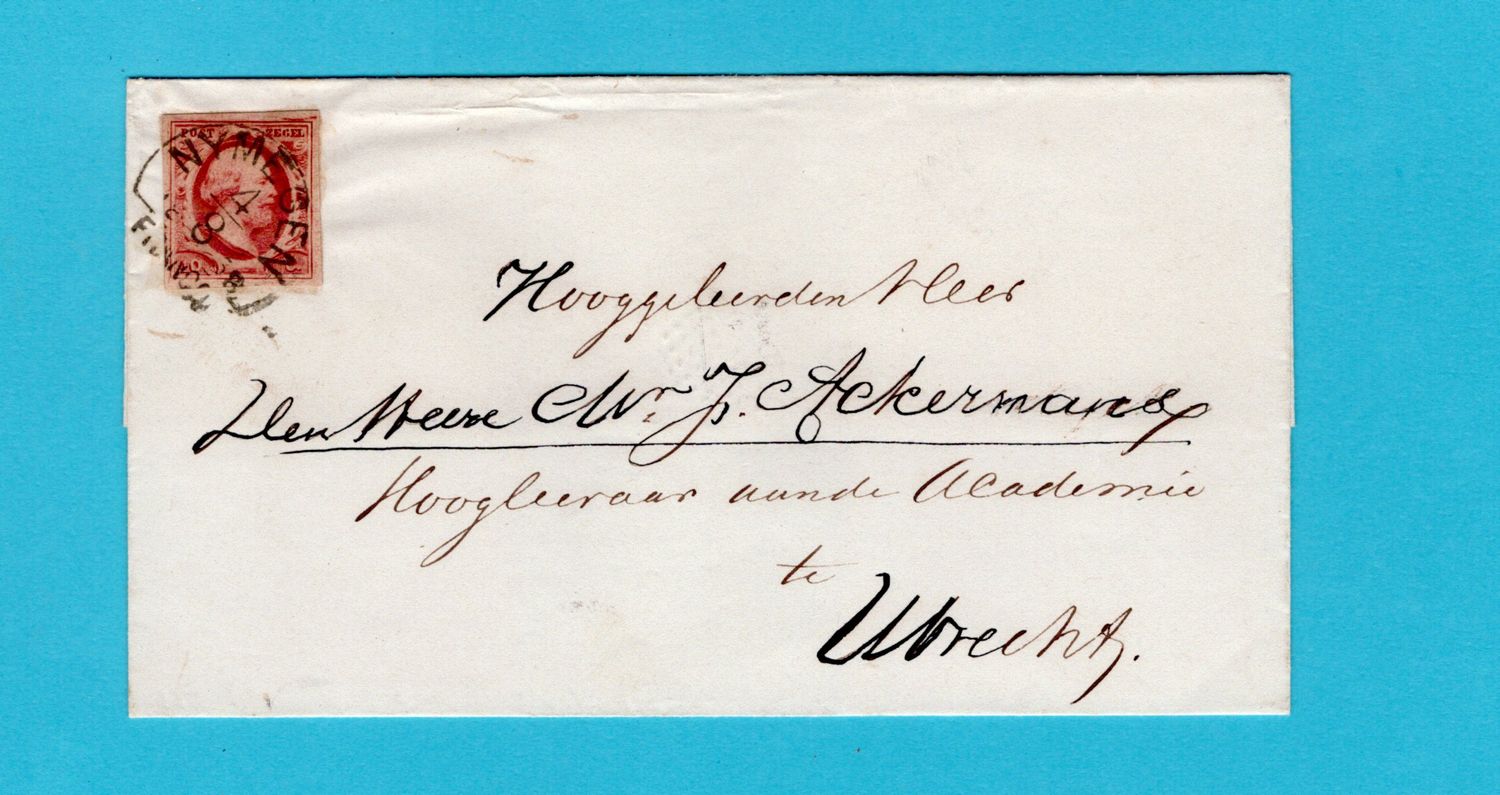 POST ZEGEL
NYMEGEN
4/8
FRANCO
Hooggeleerden Heer
Den Heere Mr. J. Ackermans
Hoogleeraar aan de Academie
te
Utrecht.